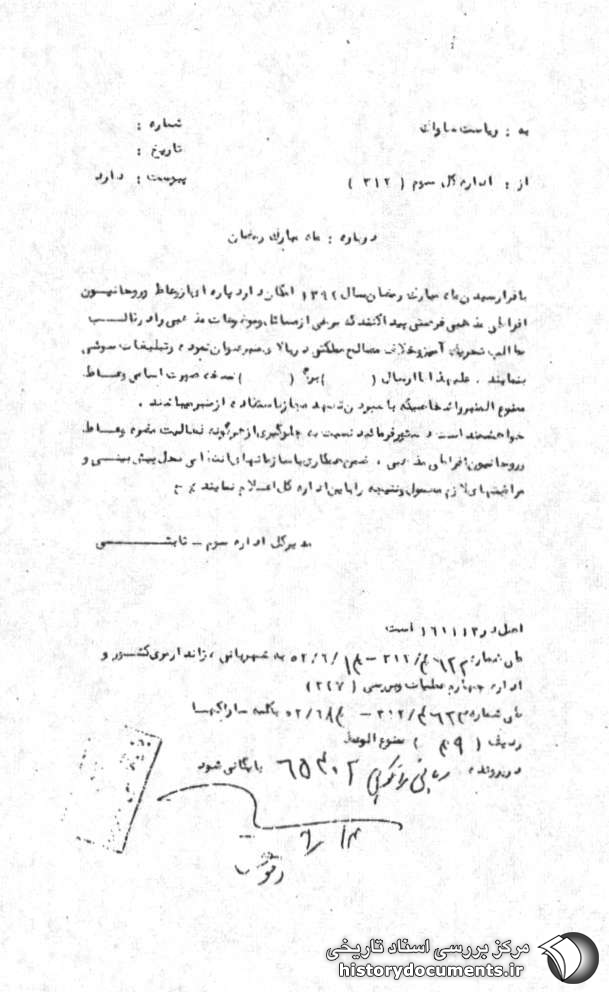 به : ریاست ساواک
شماره :
تاریخ :
از : اداره کل سوم ( ۳۱۲ )
پیوست : دارد
درباره : ماه مبارک رمضان
با فرا رسیدن ماه مبارک رمضان سال ۱۳۹۲ امکان دارد پاره ای از وعاظ و روحانیون
افراطی مذهبی فرصتی پیدا کنند که برخی از مسائل و موضوعات مذهبی را در قالب
مطالب تحریک آمیز و خلاف مصالح مملکتی در بالای منبر عنوان نموده و تبلیغات سوئی
بنمایند . علیهذا با ارسال ( ) برگ ( ) نسخه صورت اسامی وعاظ
ممنوع المنبر و اشخاصیکه با سپردن تعهد مجاز باستفاده از منبر میباشند .
خواهشمند است دستور فرمائید نسبت به جلوگیری از هرگونه فعالیت مضره وعاظ
و روحانیون افراطی مذهبی ، ضمن همکاری با سازمانهای انتظامی محل پیش بینی و
مراقبتهای لازم معمول و نتیجه را باین اداره کل اعلام نمایند
مدیرکل اداره سوم – ثابتی
اصل در ۱۶۱۱۱۲ است
طی شماره ۳۱۲ – به شهربانی ، ژاندارمری کشور و
اداره چهارم عملیات و بررسی ( ۳۲۷ )
طی شماره – بکلیه ساواکها
ردیف ( ) ممنوع الوعظ
در پرونده بایگانی شود
مرکز بررسی اسناد تاریخی
historydocuments.ir